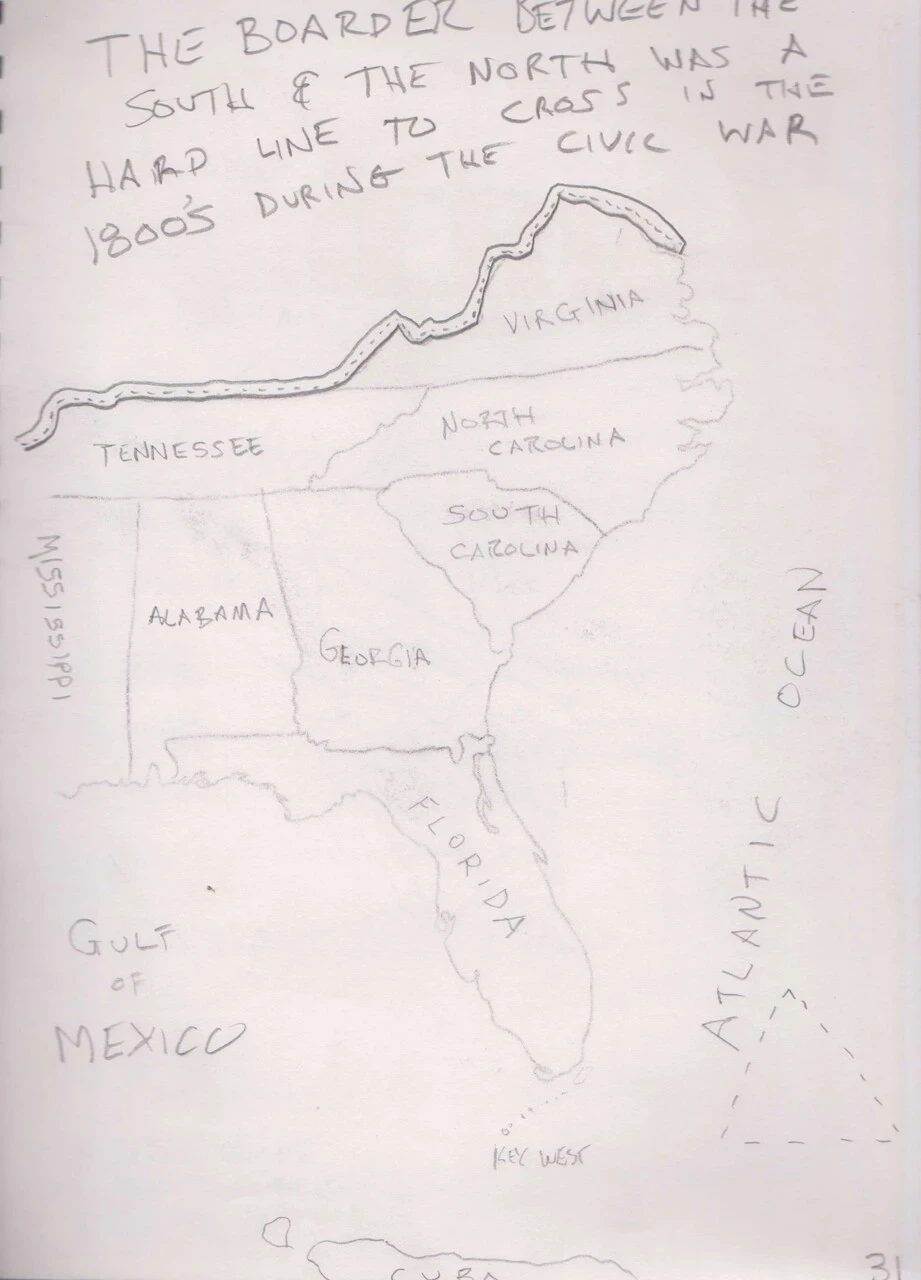 THE BOARDER BETWEEN THE
SOUTH & THE NORTH WAS A
HARD LINE TO CROSS IN THE
1800'S DURING THE CIVIC WAR
VIRGINIA
NORTH
CAROLINA
TENNESSEE
SOUTH
CAROLINA
MISSISSIPPI
ALABAMA
GEORGIA
FLORIDA
ATLANTIC OCEAN
GULF
OF
MEXICO
KEY WEST
CUBA
31